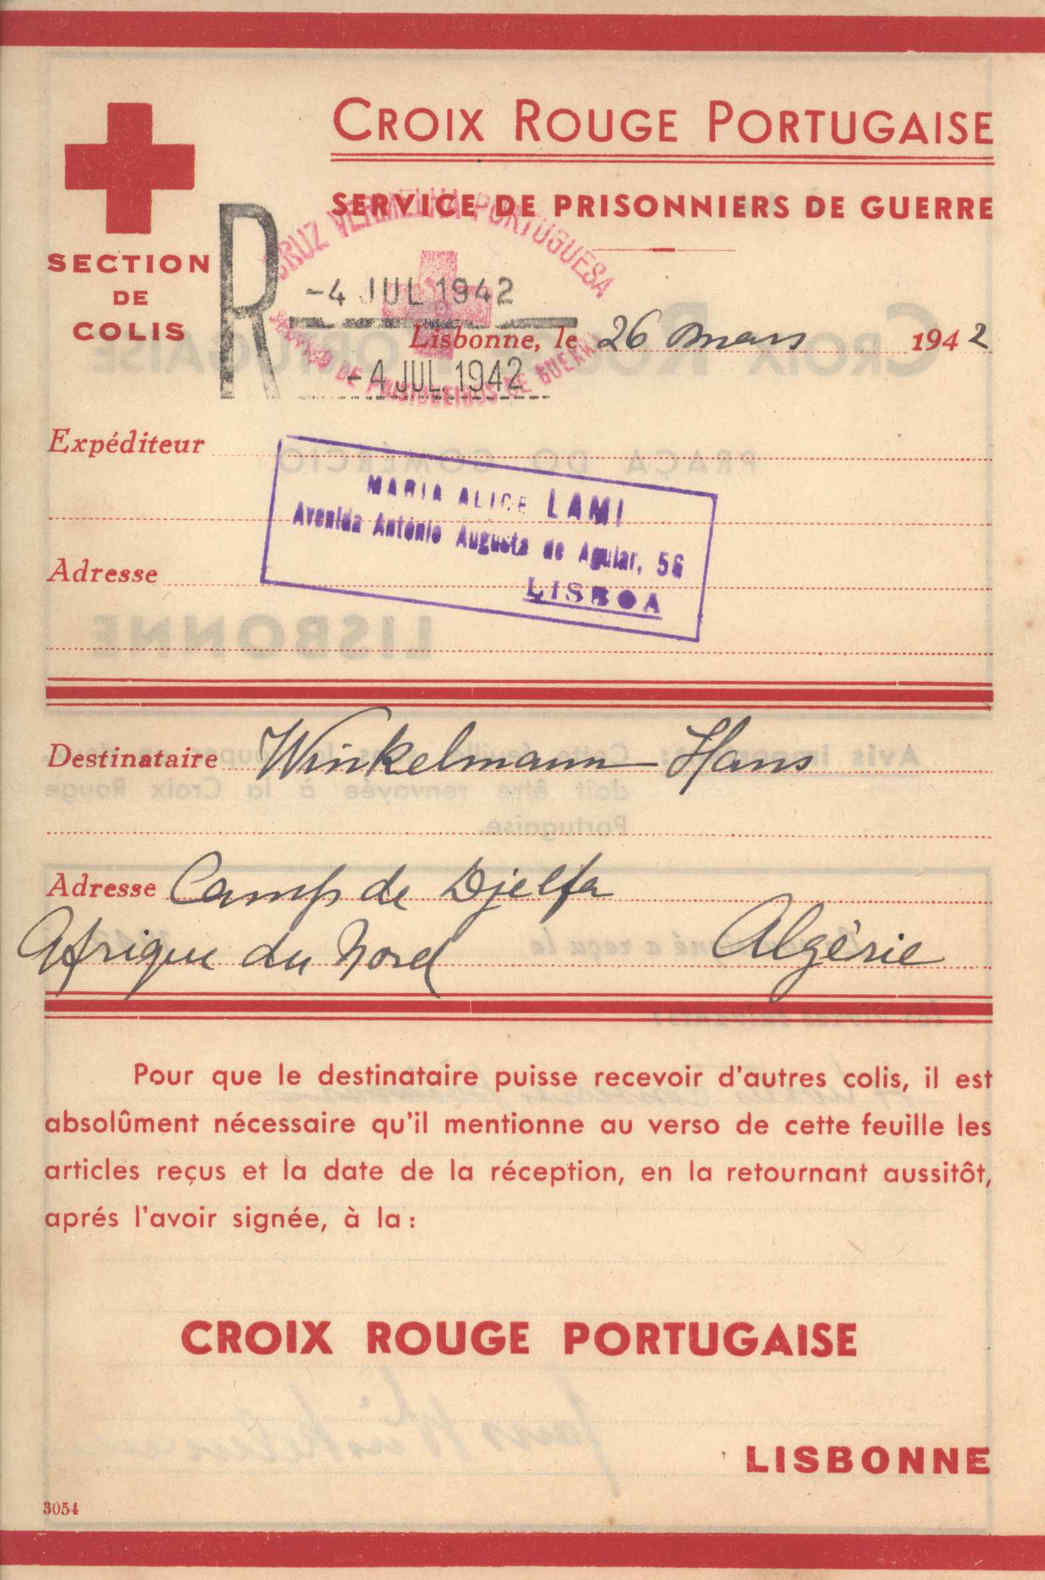 CROIX ROUGE PORTUGAISE
SERVICE DE PRISONNIERS DE GUERRE
SECTION
DE
COLIS
R
CRUZ VERMELHA PORTUGUESA
-4 JUL 1942
Lisbonne, le 26 mars 1942
-4 JUL. 1942
SERVIÇO DE PRISIONEIROS DE GUERRA
Expéditeur
MARIA ALICE LAMI
Avenida António Augusta de Aguiar, 56
LISBOA
Adresse
Destinataire Winkelmann Hans
Adresse Camp de Djelfa
Afrique du Nord Algérie
Pour que le destinataire puisse recevoir d'autres colis, il est
absolûment nécessaire qu'il mentionne au verso de cette feuille les
articles reçus et la date de la réception, en la retournant aussitôt,
aprés l'avoir signée, à la:
CROIX ROUGE PORTUGAISE
LISBONNE
3054